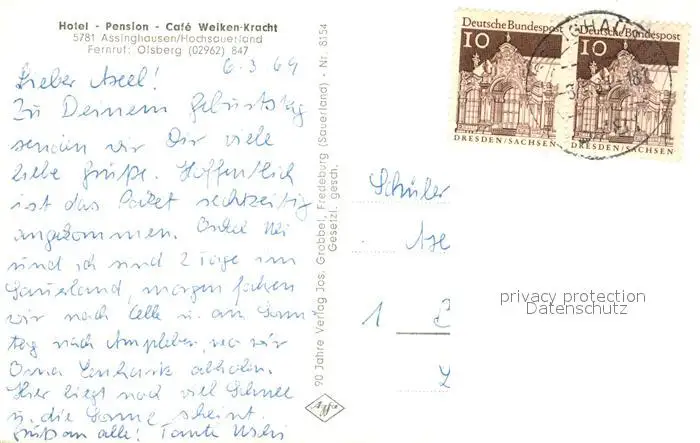 Hotel - Pension - Café Weiken-Kracht
5781 Assinghausen/Hochsauerland
Fernruf: Olsberg (02962) 847
6.3.69
Lieber Axel!
Zu Deinem Geburtstag
senden wir Dir viele
liebe Grüße. Hoffentlich
ist das Paket rechtzeitig
angekommen. Onkel
und ich sind 2 Tage im
Sauerland, morgen fahren
wir nach Celle u. am Sonn
tag nach Ampleben, wo wir
Oma abholen.
Hier liegt noch viel Schnee
u. die Sonne scheint.
Gruß an alle! Tante Uschi
90 Jahre Verlag Jos. Grobbel, Fredeburg (Sauerland) - Nr. 8154
Gesetzl. gesch.
Agfa
Deutsche Bundespost
10
DRESDEN/SACHSEN
Deutsche Bundespost
10
DRESDEN/SACHSEN
Schüler
Axe
1
privacy protection
Datenschutz